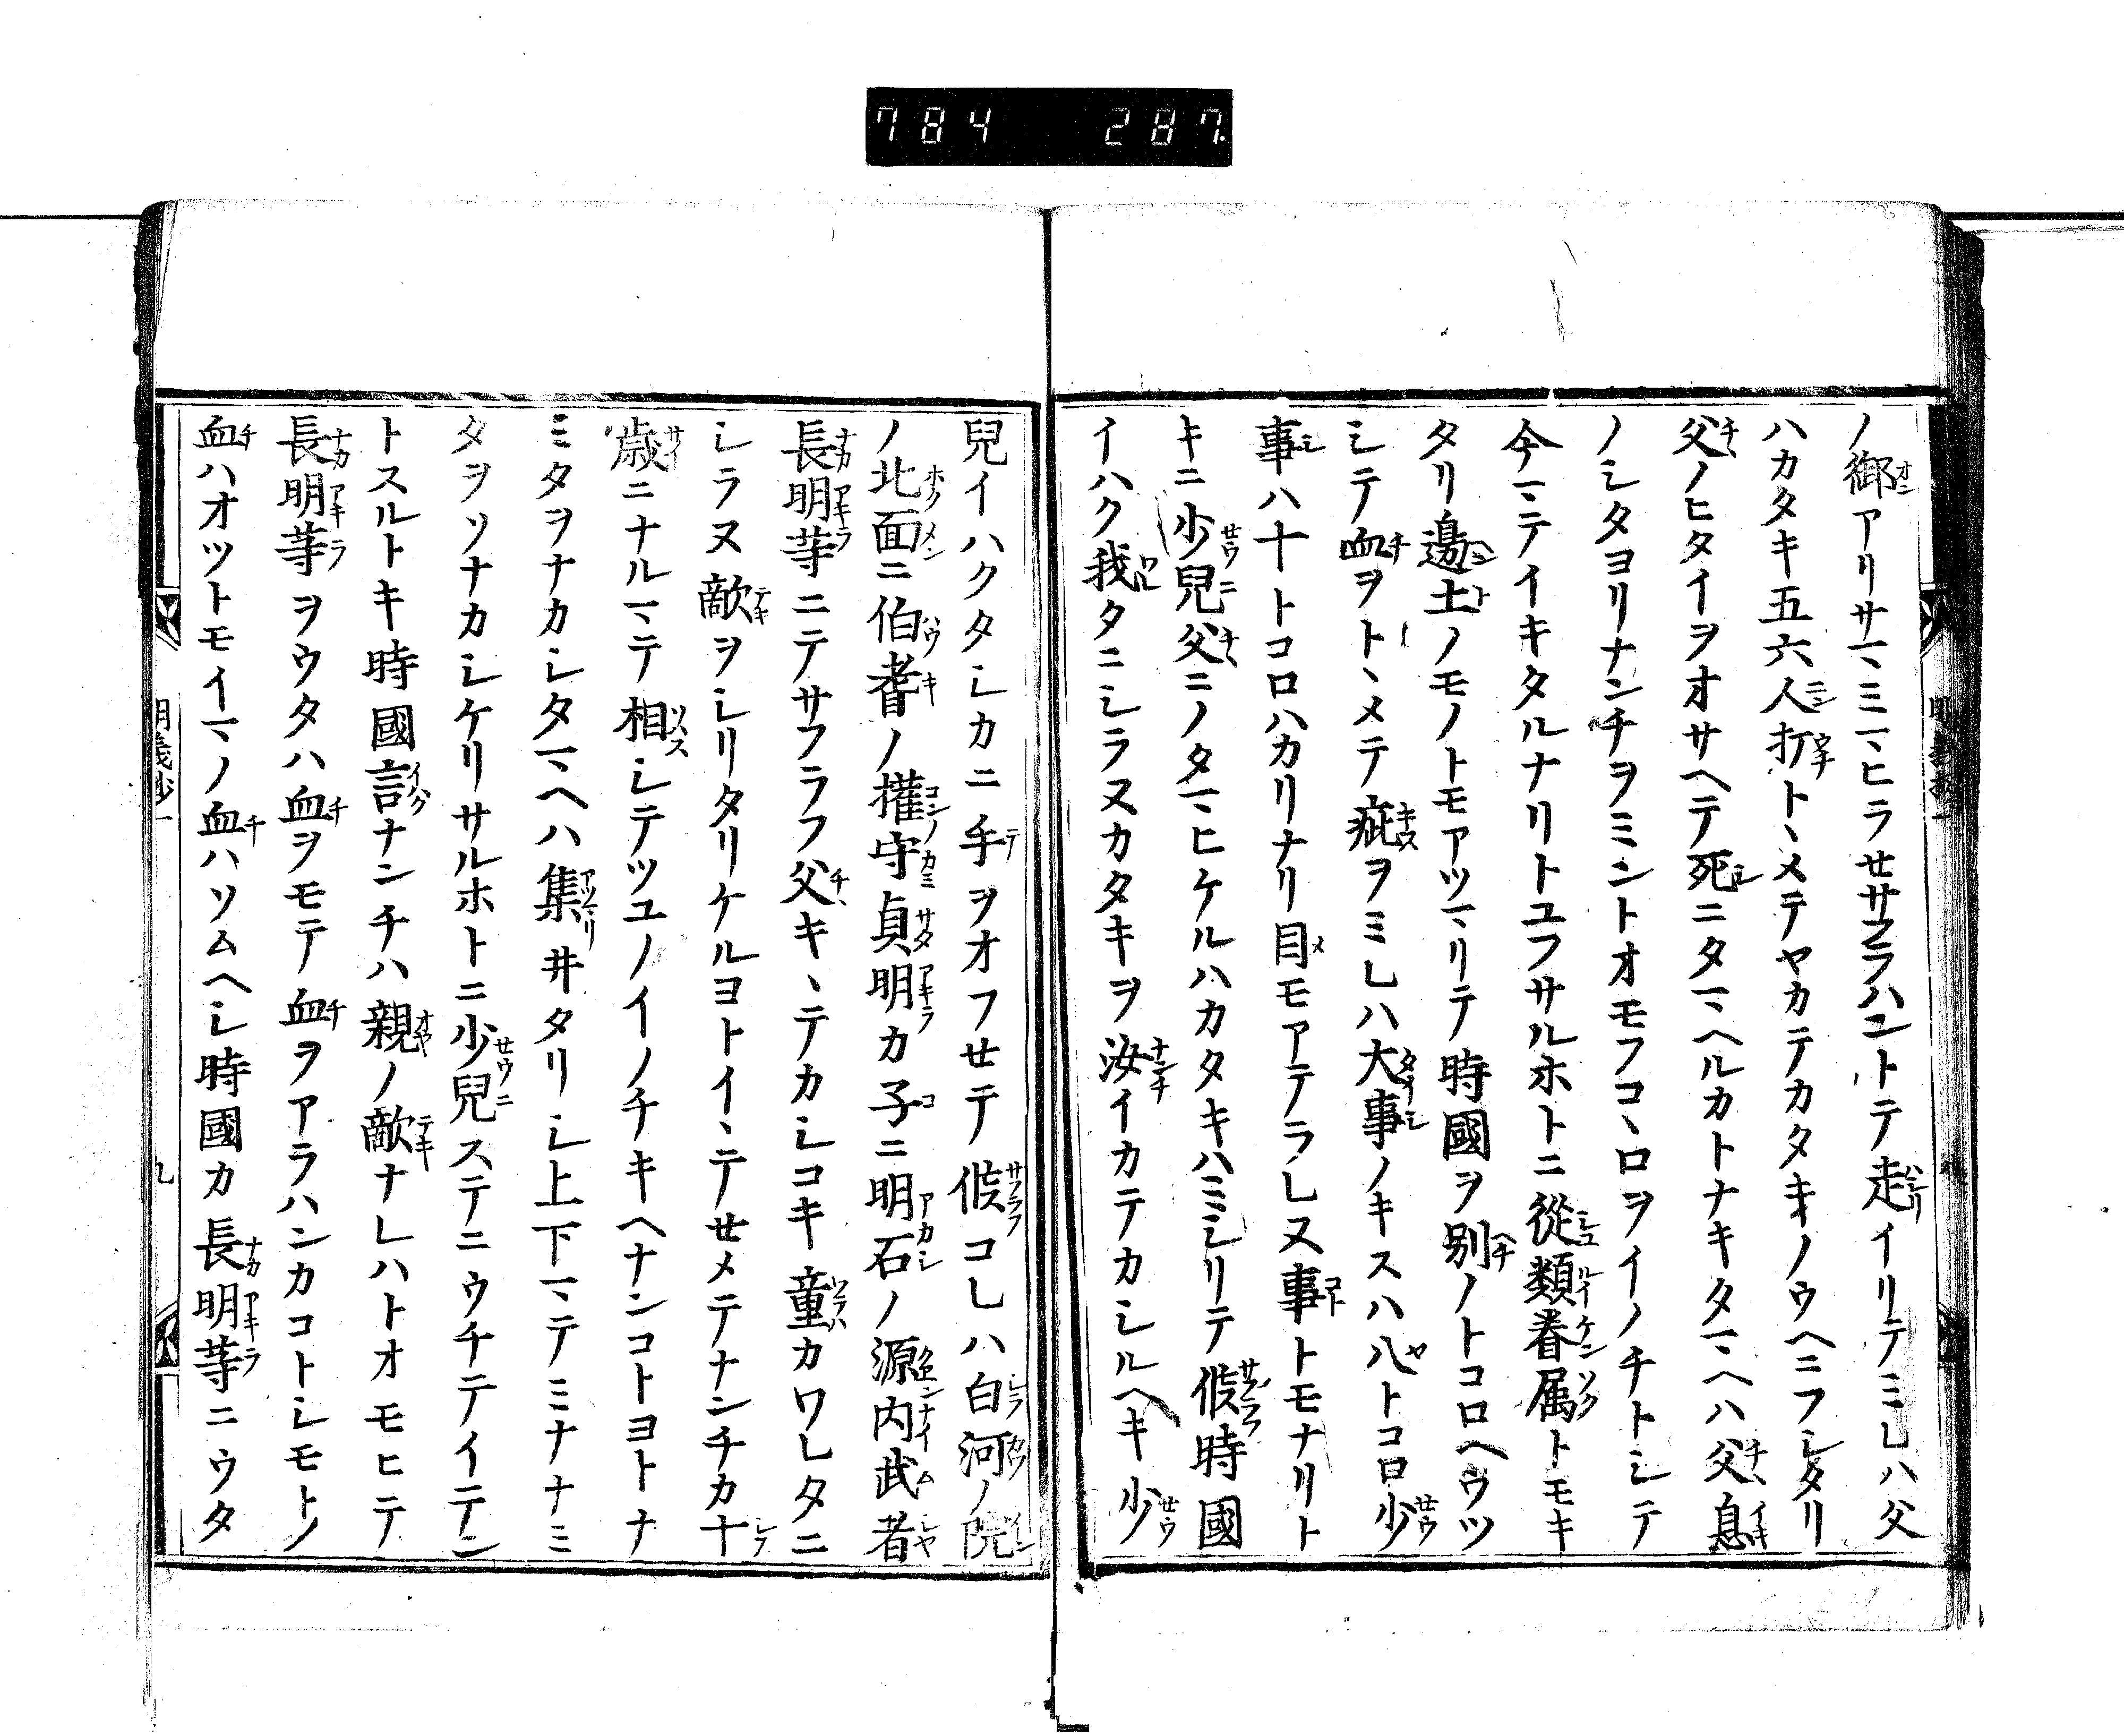 784 287
ノ御アリサマミマヒラセサフラハントテ走イリテミレハ父
ハカタキ五六人打トヽメテヤカテカタキノウヘニフシタリ
父ノヒタイヲオサヘテ死ニタマヘルカトナキタマヘハ父息
ノシタヨリナンチヲミントオモフコヽロヲイノチトシテ
今マテイキタルナリトユフサルホトニ從類眷属トモキ
タリ邊土ノモノトモアツマリテ時國ヲ别ノトコロヘウツ
シテ血ヲトヽメテ疵ヲミレハ大事ノキスハ八トコロ少
事ハ十トコロハカリナリ目モアテラレヌ事トモナリト
キニ少兒父ニノタマヒケルハカタキハミシリテ候時國
イハク我タニシラスカタキヲ汝イカテカシルヘキ少
兒イハクタシカニ手ヲオフセテ候コレハ白河ノ院
ノ北面ニ伯耆ノ權守貞明カ子ニ明石ノ源内武者
長明等ニテサフラフ父キヽテカシコキ童カワレタニ
シラヌ敵ヲシリタリケルヨトイヽテセメテナンチカ十
歳ニナルマテ相シテツユノイノチキヘナンコトヨトナ
ミタヲナカシタマヘハ集井タリシ上下マテミナナミ
タヲソナカシケリサルホトニ少兒ステニウチテイテン
トスルトキ時國言ナンチハ親ノ敵ナレハトオモヒテ
長明等ヲウタハ血ヲモテ血ヲアラハンカコトシモトノ
血ハオツトモイマノ血ハソムヘシ時國カ長明等ニウタ
明義抄一
九